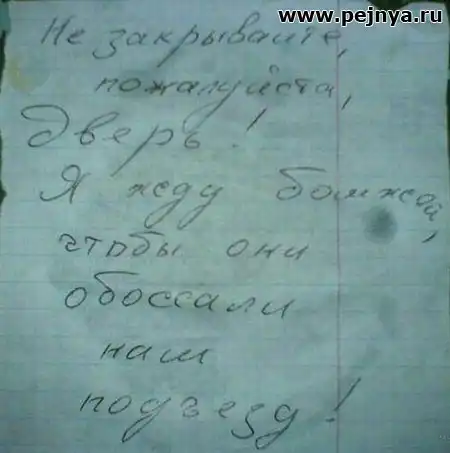 www.pejnya.ru
Не закрывайте,
пожалуйста,
Дверь!
Я жду бомжей,
чтобы они
обоссали
наш
подъезд!